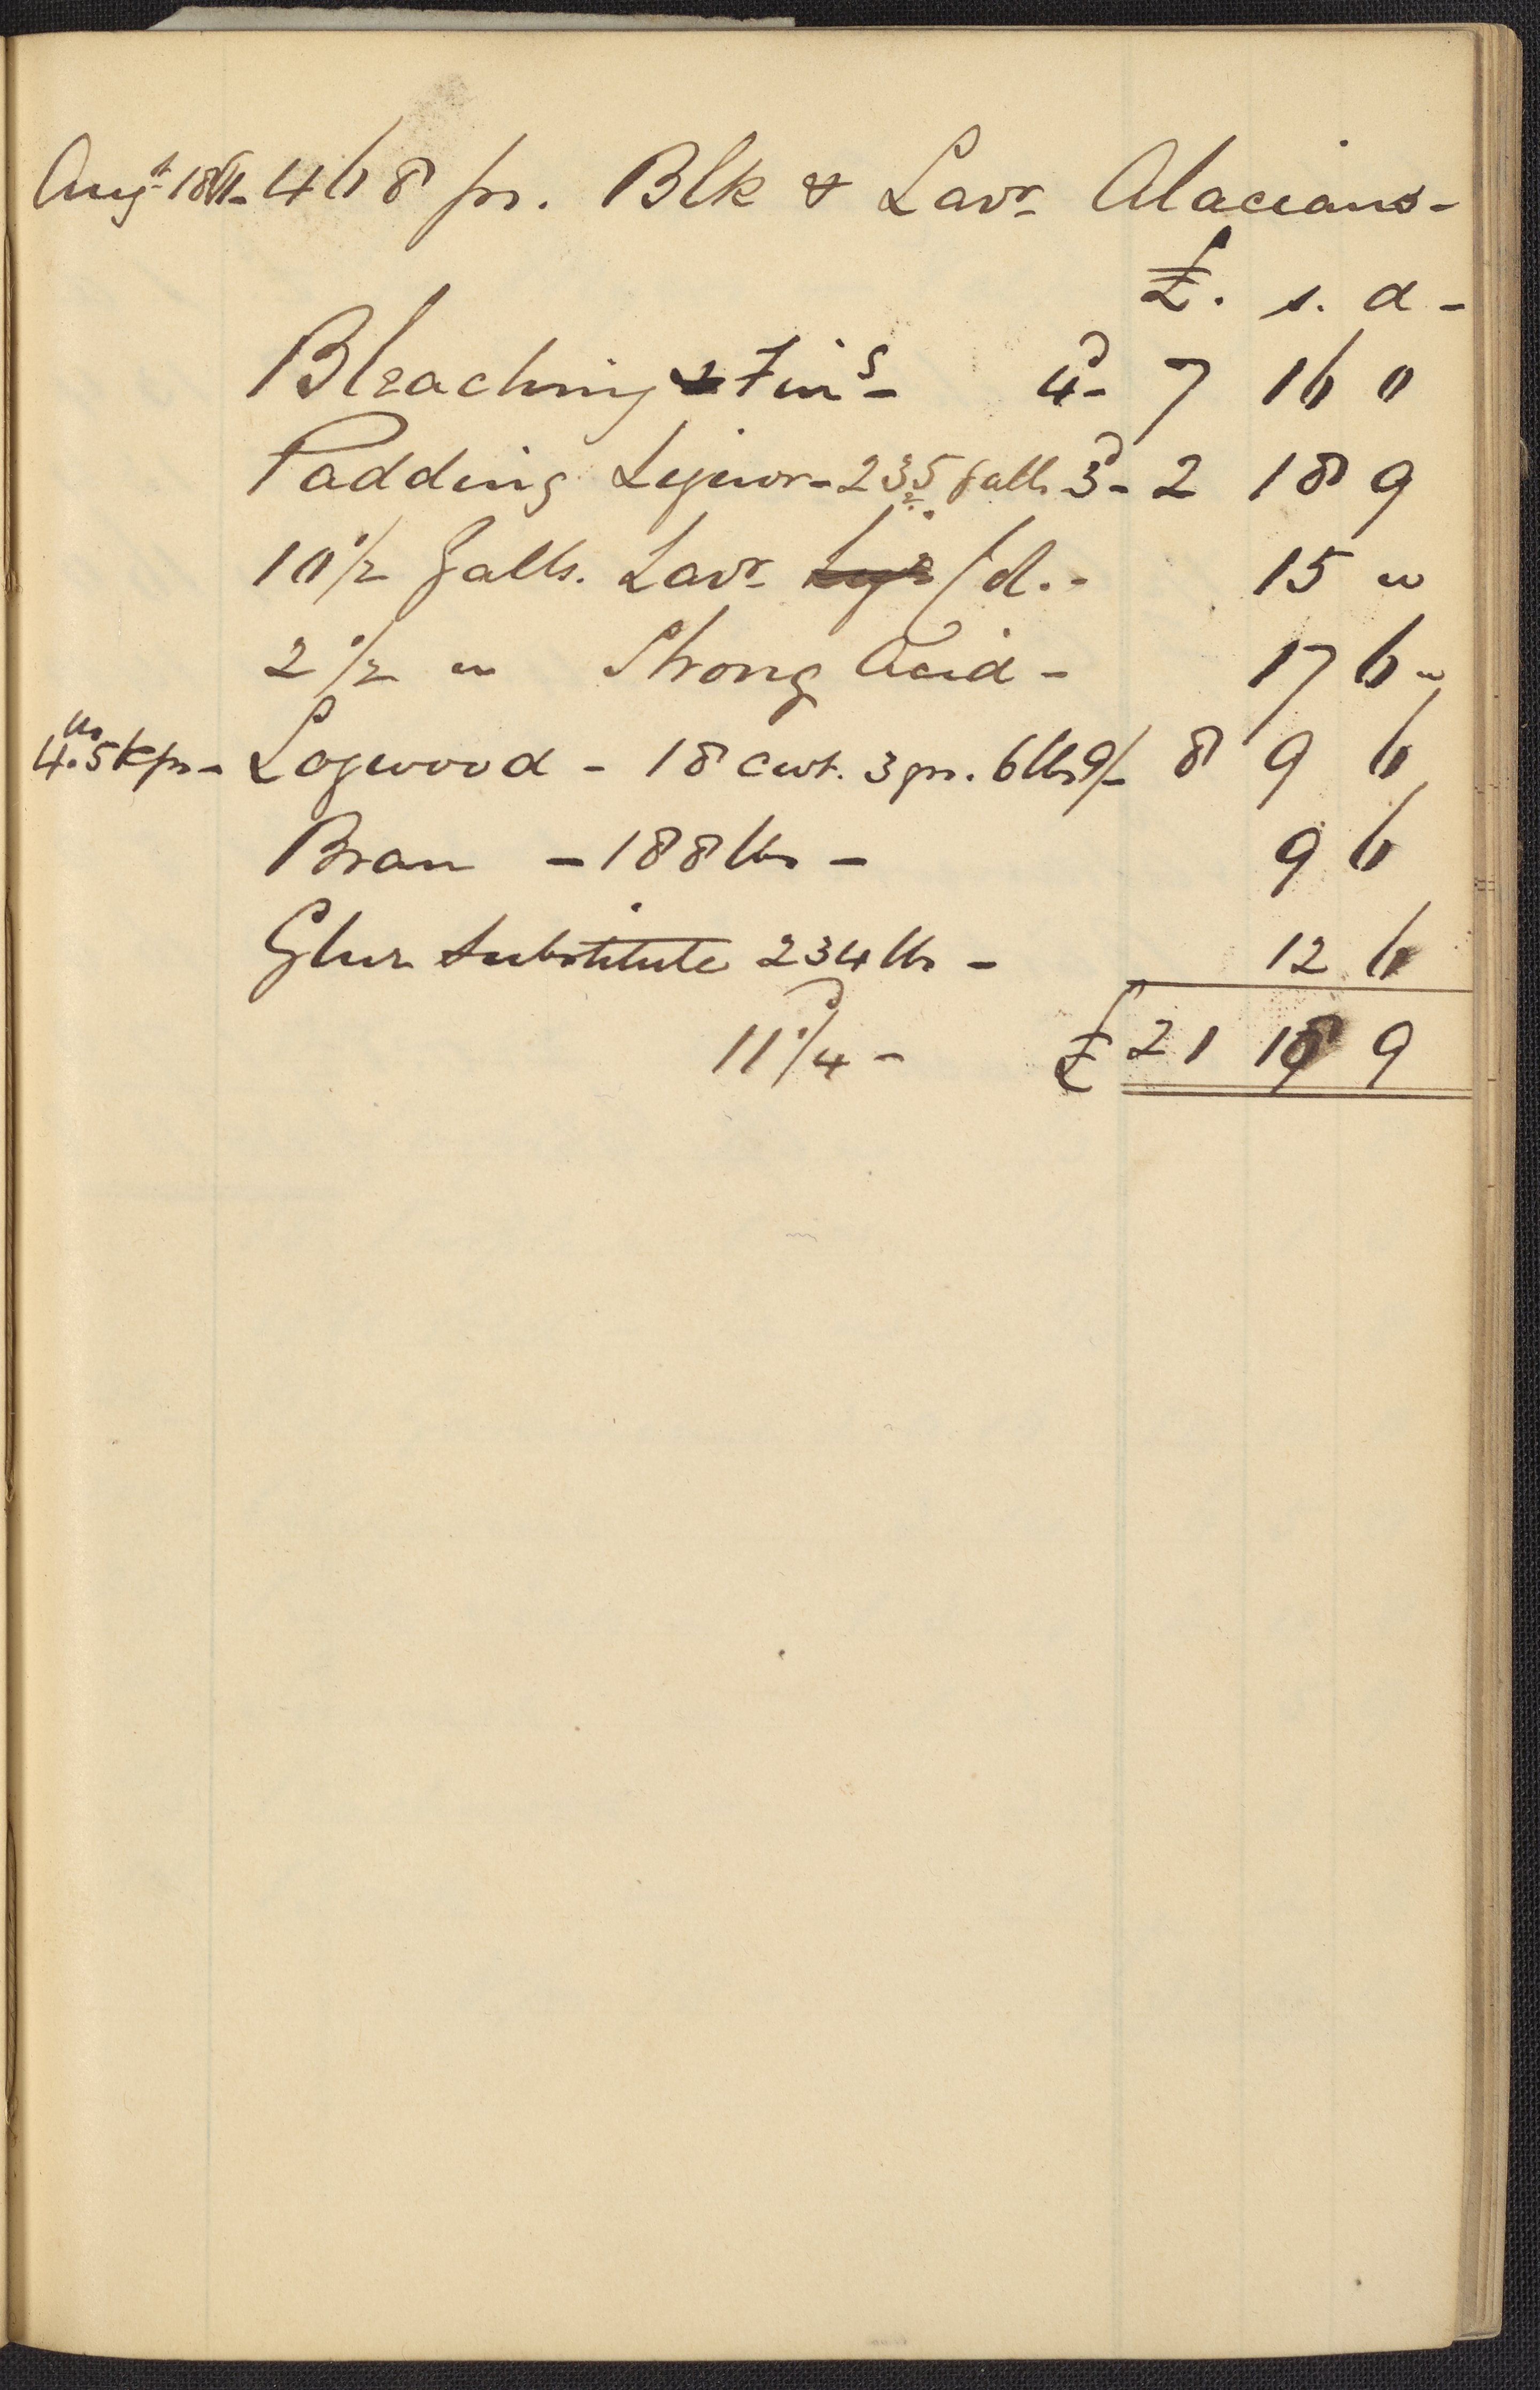 Augt 18th- 468 ps. Blk & Lavr Alacians-
£. s. d-
Bleaching & Fings- 4d- 7 16 0
Padding Liquor- 235 galls 3d- 2 18 9
10 1/2 Galls. Lavr /d.- 15 "
2 1/2 " Strong Acid- 17 6"
4.5 lbs per ps- Logwood - 18 cwt. 3 qrs. 6 lbs 9/- 8 9 6
Bran - 188 lbs - 9 6
Glue Substitute 234 lbs - 12 6
11 1/4d - £ 21 18 9